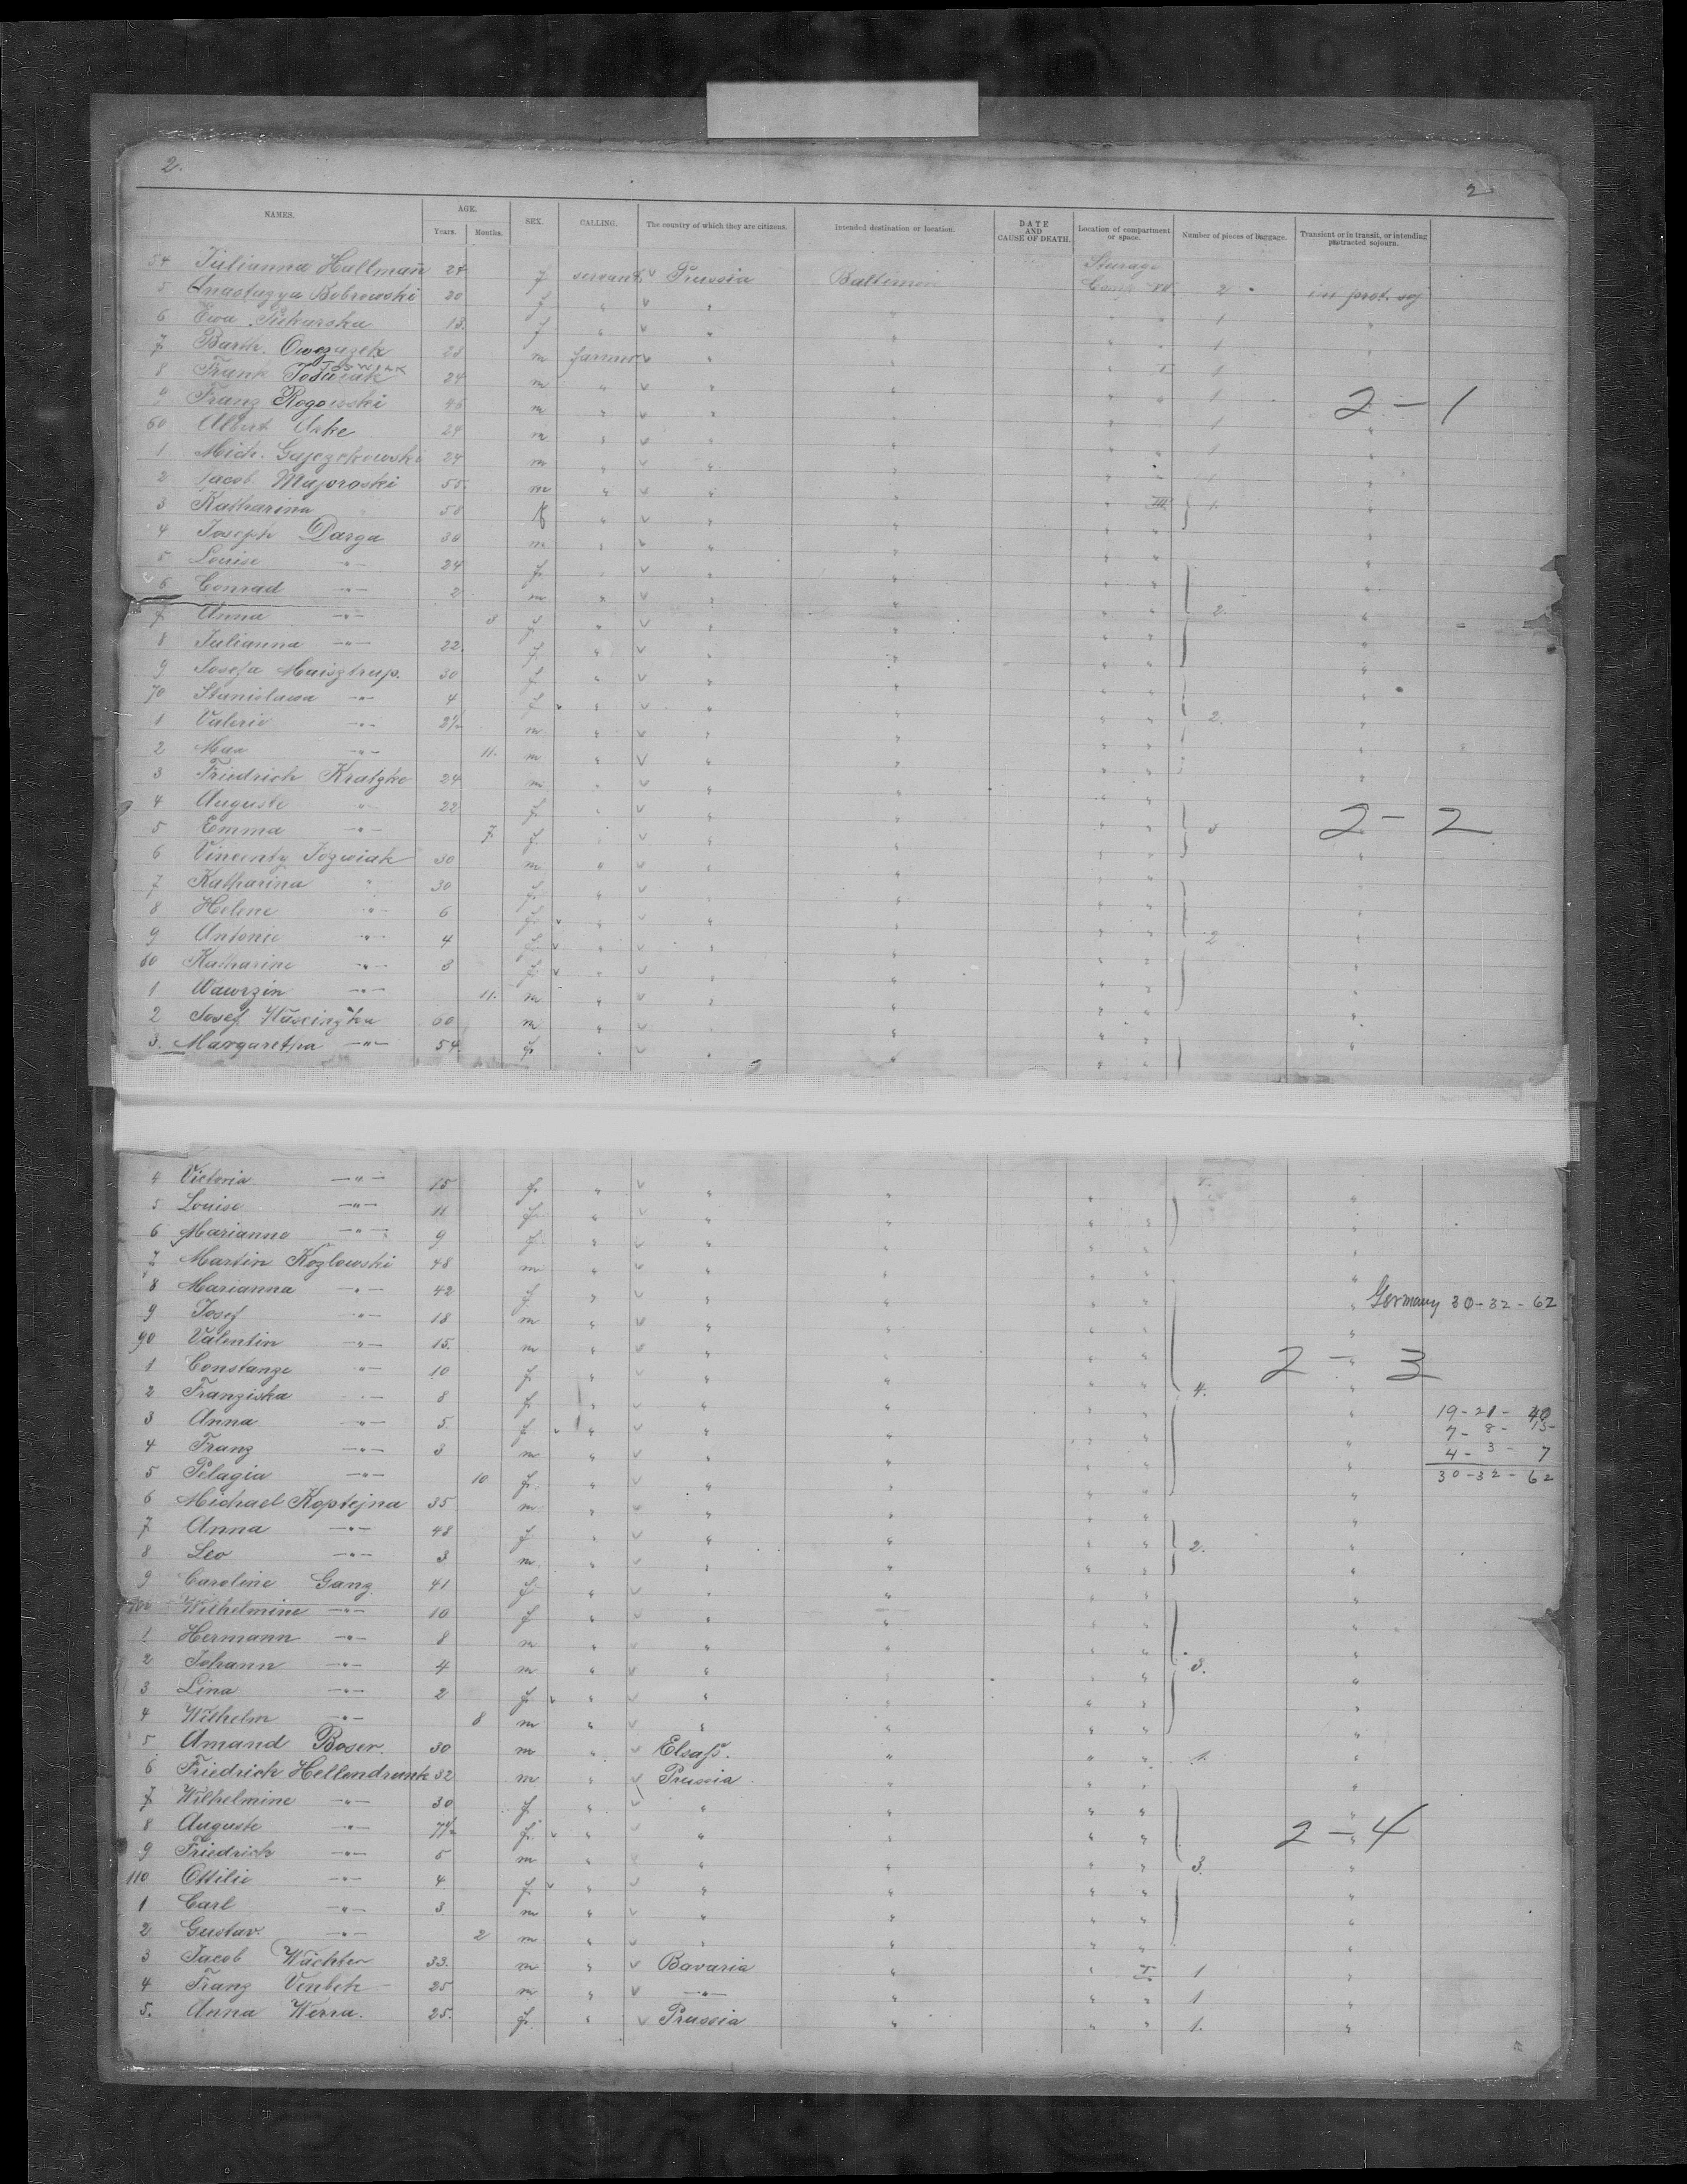 2. 2
NAMES. AGE. SEX. CALLING. The country of which they are citizens. Intended destination or location. DATE AND CAUSE OF DEATH. Location of compartment or space. Number of pieces of baggage. Transient or in transit, or intending protracted sojourn.
Years. Months.
54 Julianna Hallmann 24 f servant v Prussia Baltimore Sturage
5 Anastazya Bobrowski 20 f " v " " Comp 2 int prot. soj
6 Ewa Piekarska 18. f " v " " " 1 "
7 Barth. Owczazek 28 m farmer v " " " 1 "
8 Frank 24 m " v " " " 1
9 Franz Rogowski 46 m " v " " " " 1 2 - 1
60 Albert Uske 24 m " v " " " 1 "
1 Mich. Gajezekowski 24 m " v " " " " 1 "
2 Jacob Majoroski 55. m " v " " " " 1 "
3 Katharina 58 f " v " " " III 1. "
4 Joseph Darga 30 m " v " " " " "
5 Louise -"- 24 f. " v " " " " "
6 Conrad -"- 2 m " v " " " " "
7 Anna -"- 3 f. " v " " " " 2. "
8 Julianna -"- 22. f. " v " " " " "
9 Josefa Maisztrup. 30 f " v " " " " "
70 Stanislawa -"- 4 f v " v " " " " "
1 Valerie -"- 2½ m " v " " " " 2. "
2 Max -"- 11. m " v " " " " "
3 Friedrich Kratzke 24 m " v " " " " "
4 Auguste " 22 f. " v " " " "
5 Emma -"- 7 f. " v " " " " 3 2 - 2
6 Vincenty Jozwiak 30 m " v " " " " "
7 Katharina " 30 f. " v " " " " "
8 Helene " 6 f. v " v " " " " "
9 Antonie -"- 4 f. v " v " " " " 2 "
80 Katharine -"- 3 f. v " v " " " " "
1 Wawrzin -"- 11. m " v " " " " "
2 Josef 60 m " v " " " " "
3. Margaretha -"- 54. f. " v " " " " "
4 Victoria -"- 15 f. " v " " " 1. "
5 Louise -"- 11 f. " v " " " " "
6 Marianne -"- 9 f. " v " " " " "
7 Martin Kozlowski 48 m " v " " " " "
8 Marianna -"- 42 f " v " " " " " Germany 30-32-62
9 Josef -"- 18 m " v " " " " "
90 Valentin -"- 15. m " v " " " " 2 - 3
1 Constanze " 10 f. " v " " " " "
2 Franziska -"- 8 f. " v " " " " 4. "
3 Anna -"- 5. f. v " v " " " " " 19-21-40
4 Franz -"- 3 m " v " " " " " 7-8-15-
5 Pelagia -"- 10 f. " v " " " " 4-3-7
6 Michael Koptejna 35 m " v " " " " " 30-32-62
7 Anna -"- 48 f. " v " " " " "
8 Leo -"- 3. m " v " " " " 2. "
9 Caroline Gang. 41 f. " v " " " " "
100 Wilhelmine -"- 10 f " v " " " " "
1 Hermann -"- 8 m " v " " " " "
2 Johann -"- 4 m " v " " " " 3. "
3 Lina -"- 2 f. v " v " " " " "
4 Wilhelm -"- 8 m " v " " " " "
5 Amand Boser. 30 m " v Elsaß. " " " 1. "
6 Friedrich Hellendrunk 32 m " v Prussia " " " "
7 Wilhelmine -"- 30 f. " v " " " " "
8 Auguste -"- 7½ f. v " v " " " " 2 - 4
9 Friedrich -"- 5 m " v " " " " 3. "
110 Ottilie -"- 4 f. v " v " " " " "
1 Carl -"- 3 m " v " " " " "
2 Gustav. -"- 2 m " v " " " " "
3 Jacob Wächter 33. m " v Bavaria " " 1 "
4 Franz Venbek 25 m " v -"- " " " 1 "
5. Anna Werra. 25. f. " v Prussia " " " 1. "